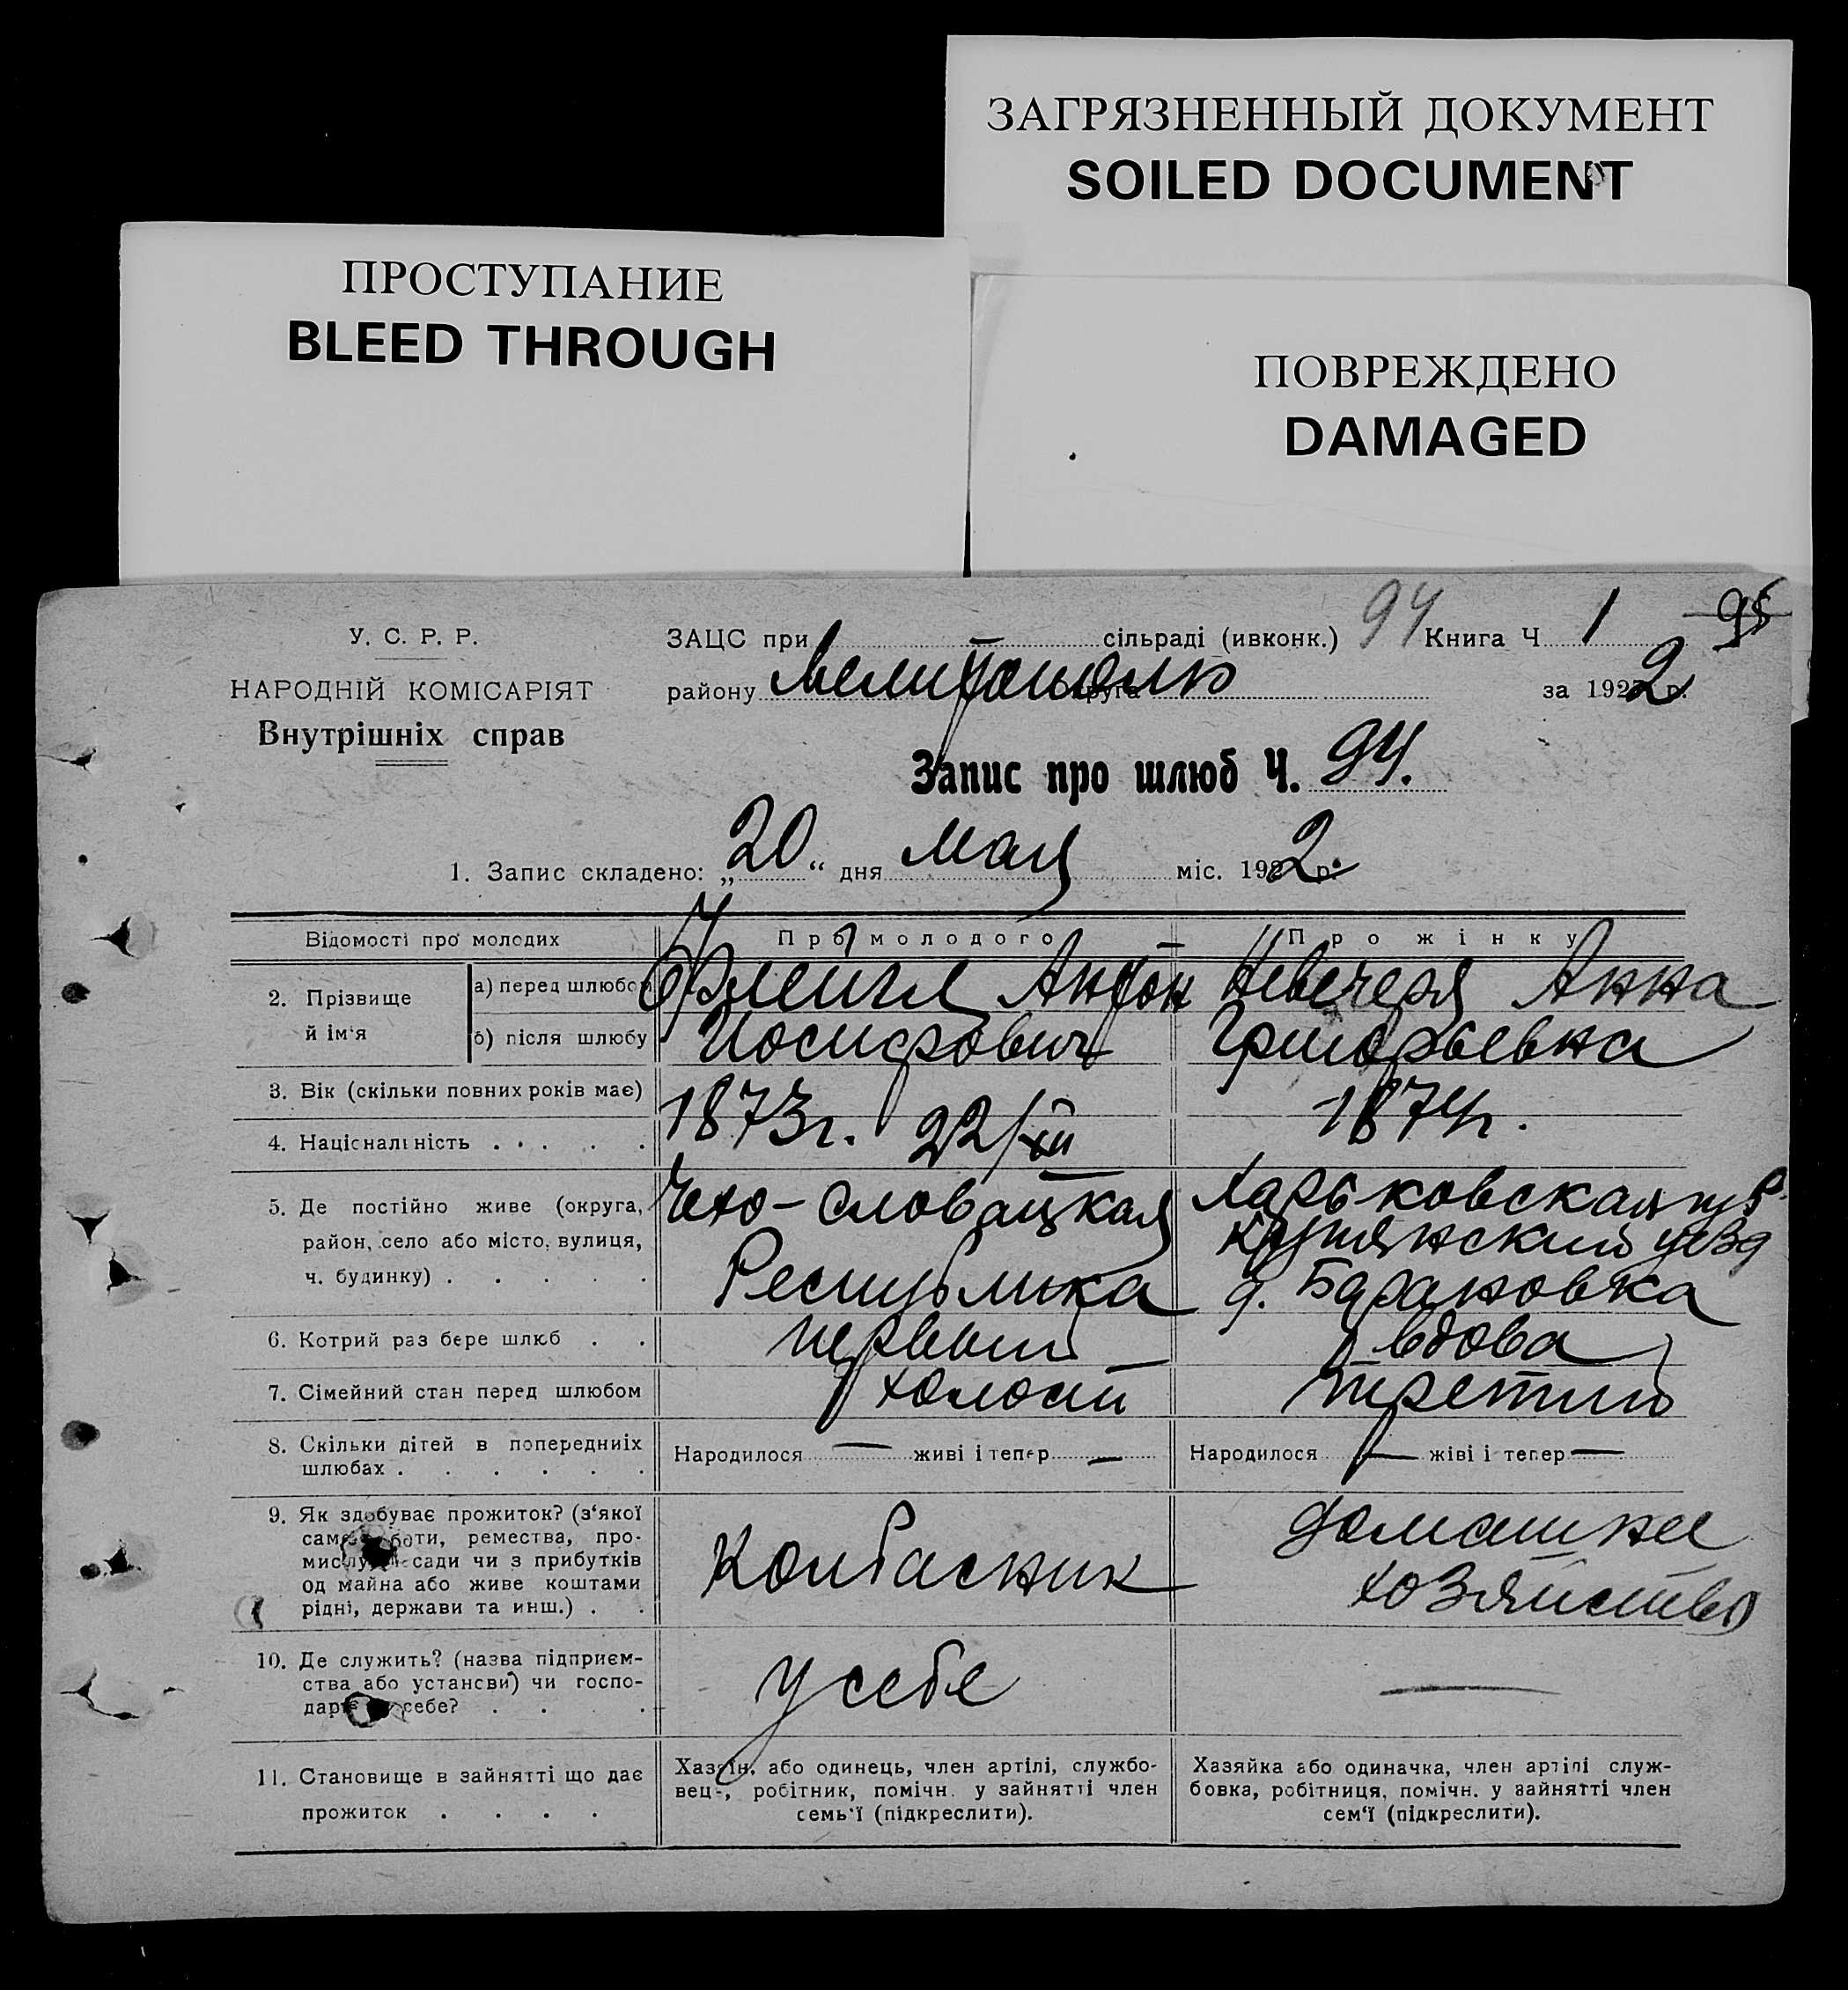 ЗАГРЯЗНЕННЫЙ ДОКУМЕНТ
SOILED DOCUMENT
ПРОСТУПАНИЕ
BLEED THROUGH
ПОВРЕЖДЕНО
DAMAGED
У. С. Р. Р.
НАРОДНІЙ КОМІСАРІЯТ
Внутрішніх справ
ЗАЦС при сільраді (ивконк.) 94 Книга Ч 1 95
району Мелитополь за 1922 р.
Запис про шлюб Ч. 94.
1. Запис складено: „20“ дня мая міс. 1922 р.
Відомості про молодих Про молодого Про жінку
2. Прізвище й ім‘я
а) перед шлюбом Флейгл Антон Невечеря Анна
б) після шлюбу Иосифович Григорьевна
3. Вік (скільки повних років має) 1873г. 22/XII 1874г.
4. Національність . . . . .
5. Де постійно живе (округа, Чехо-Словацкая Харьковская губ.
район, село або місто, вулиця, Республика Купянский уезд
ч. будинку) . . . . . д. Барановка
6. Котрий раз бере шлюб . . первый вдова
7. Сімейний стан перед шлюбом холост третий
8. Скільки дітей в попередниіх Народилося — живі і тепер — Народилося — жіві і тепер —
шлюбах . . . . . .
9. Як здобуває прожиток? (з‘якої Колбасник домашнее
роботи, ремества, про- хозяйство
сади чи з прибутків
од майна або живе коштами
рідні, держави та инш.) . .
10. Де служить? (назва підприєм- у себе —
ства або установи) чи госпо-
себе? . . .
11. Становище в зайнятті що дає
прожиток . . . .
Хазяїн, або одинець, член артілі, службо-
вець, робітник, помічн. у зайнятті член
семь‘ї (підкреслити).
Хазяйка або одиначка, член артілі служ-
бовка, робітниця, помічн. у зайнятті член
сем‘ї (підкреслити).